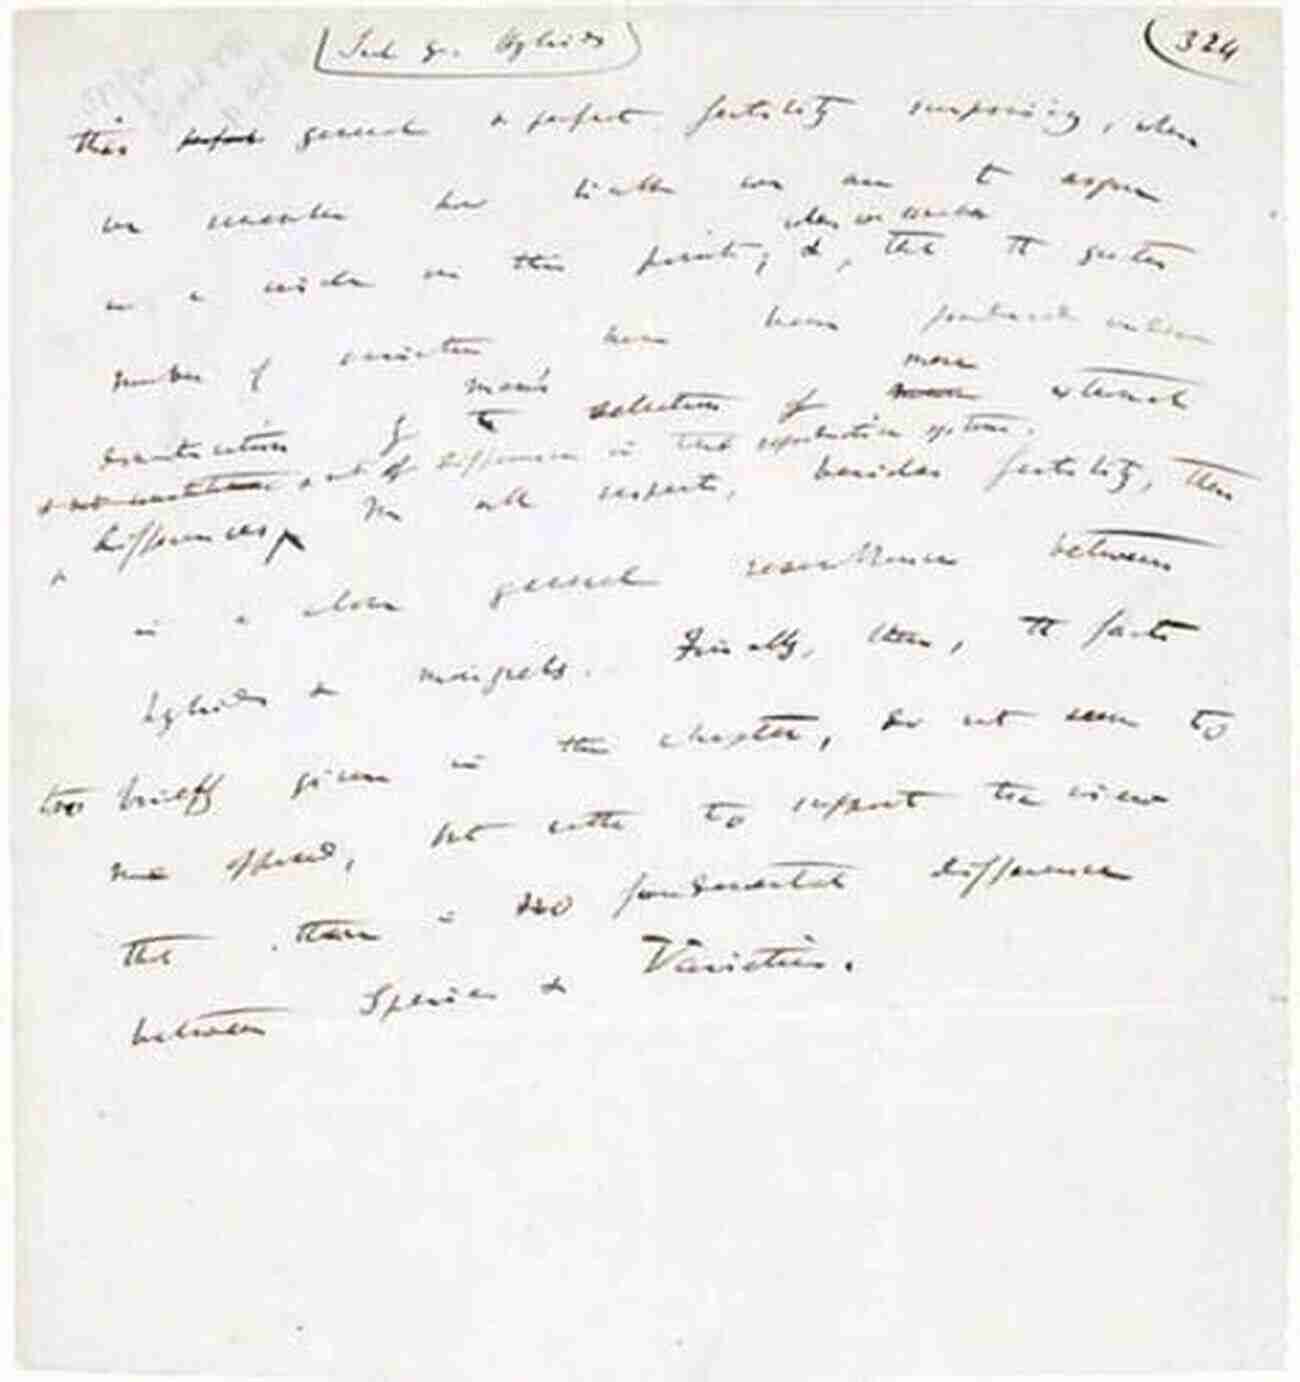 Sect 9. Hybrids
324
this perfect general & perfect fertility surprising, when
we remember how liable we are to argue
when we remember
in a circle on this point; & , that the greater
number of varieties have been produced under
man's more
domestication by the selection of mere external
& not of differences in the reproductive system.
differences, In all respects, besides fertility, there
is a close general resemblance between
hybrids & mongrels. Finally, then, the facts
too briefly given in this chapter, do not seem to
me opposed, but rather to support the view
that there is no fundamental difference
between Species & Varieties.